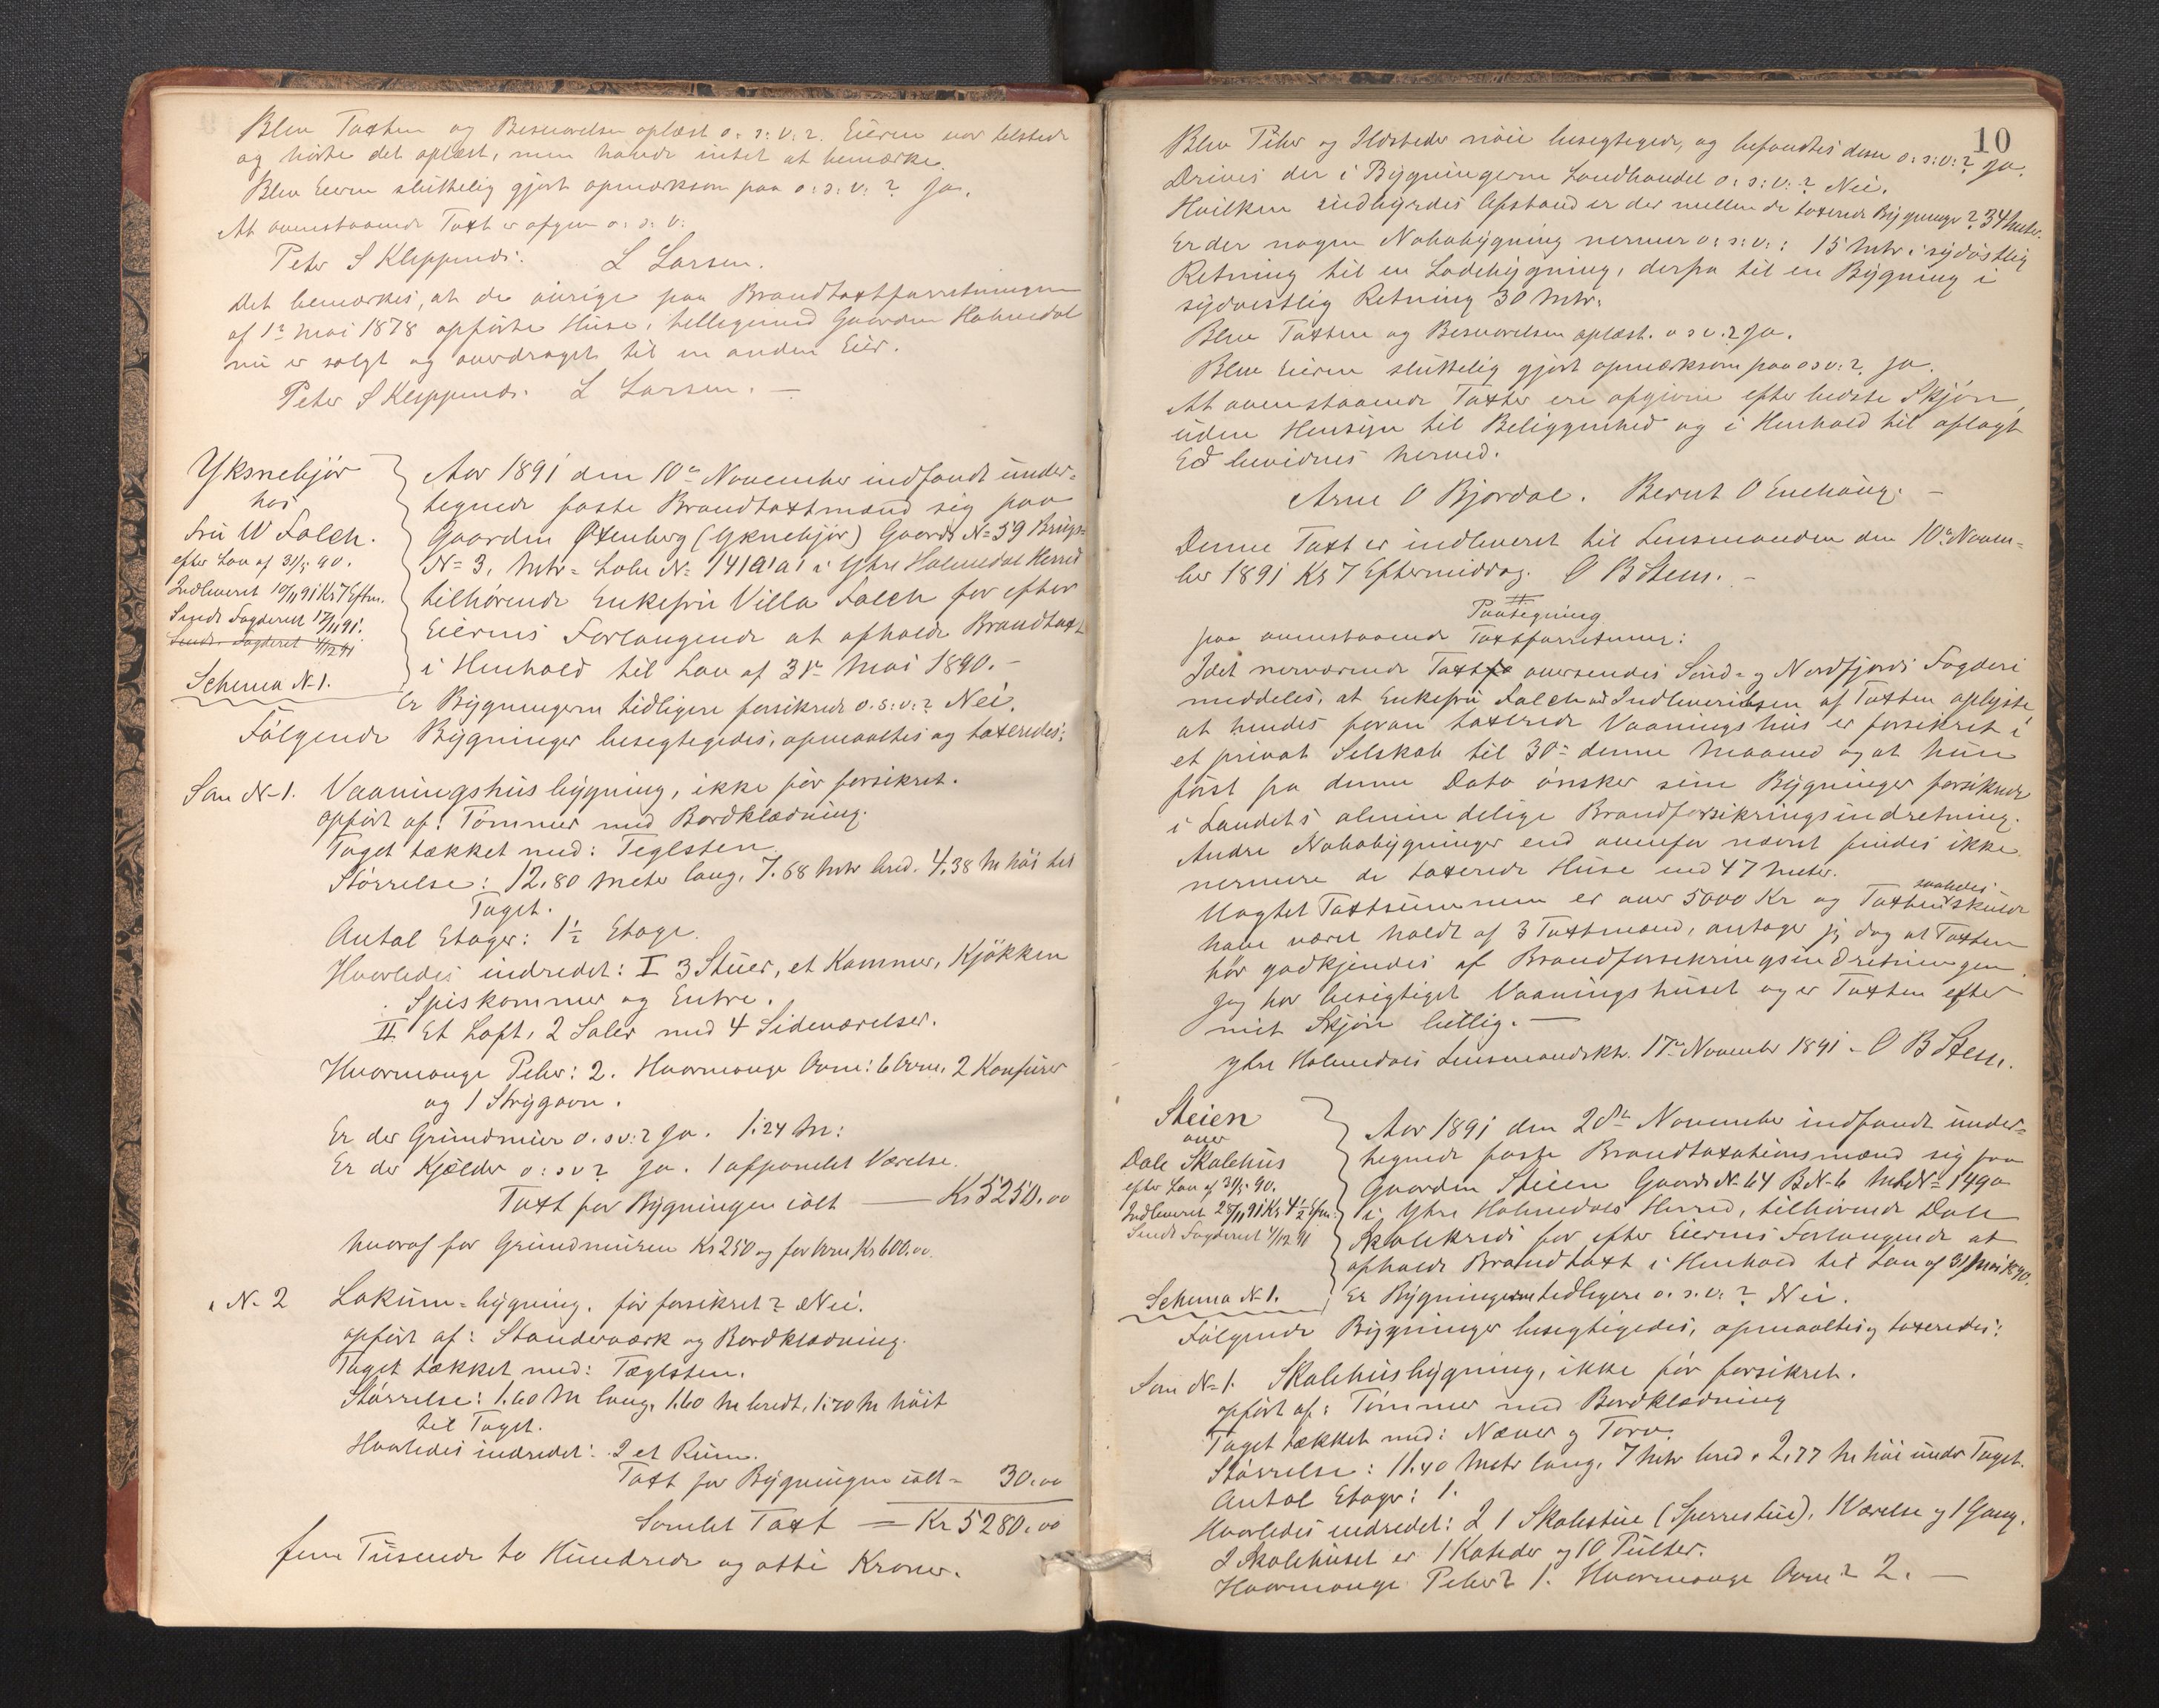 Blev Taxten og Besvarelsen oplæst o: s: v: ?. Eieren var tilstede
og hørte det oplæst, men havde intet at bemærke.
Blev Eieren sluttelig gjort opmærksom paa o: s: v: ? Ja.
At ovenstaaende Taxt er afgiven o: s: v:
Peter S Kleppenes. L Larsen.
Det bemærkes, at de øvrige paa Brandtaxtforretningen
af 1ste Mai 1878 opførte Huse, tillegemed Gaarden Holmedal
nu er solgt og overdraget til en anden Eier.
Peter S Kleppenes. L Larsen. —
Yksnebjør
hos
Fru W Falch.
efter Lov af 31/5 90.
Indleveret 10/11 91 Kl 7 Eftm.
Sendt Fogderiet 17/11 91.
Sendt Fogderiet 4/12 91
Schema N-1.
Aar 1891 den 10de November indfandt under-
tegnede faste Brandtaxtmænd sig paa
Gaarden Øxenberg (Yknebjør) Gaards N= 59 Brugs-
N= 3, Mtr= Løbe N= 141a'a' i Ytre Holmedal Herred
tilhørende Enkefru Villa Falch for efter
Eierens Forlangende at afholde Brandtaxt
i Henhold til Lov af 31te Mai 1890. –
Er Bygningerne tidligere forsikrede o. s: v:? Nei.
Følgende Bygninger besegtigedes, opmaaltes og taxeredes:
Som N-1. Vaaningshusbygning, ikke før forsikret.
opført af: Tømmer med Bordklædning.
Taget tækket med: Teglsten.
Størrelse: 12,80 Meter lang, 7.68 Mtr bred. 4,38 M høi til
Taget.
Antal Etager: 1½ Etage.
Hvorledes indredet: I 3 Stuer, et Kammer, Kjøkken
Spiskammer og Entre.
II Et Loft, 2 Saler med 4 Sideværelser.
Hvormange Peber: 2. Hvormange Ovne: 6 Ovne, 2 Komfurer
og 1 Strygovn.
Er der Grundmur o. s v:? Ja. 1.24 M:
Er der Kjælder o: s v? Ja. 1 afpanelet Værelse.
Taxt for Bygningen ialt — Kr 5250.00
hvoraf for Grundmuren Kr 250 og for Ovne Kr 600.00.
" N- 2 Lokum-bygning. før forsikret? Nei.
opført af: Standerværk og Bordklædning.
Taget tækket med: Tæglsten.
Størrelse: 1.60 M lang, 1.60 M bredt, 1.70 M høit
til Taget.
Hvorledes indredet: I et Rum.
Taxt for Bygningen ialt = 30.00
Samlet Taxt = Kr 5280.00
fem Tusende to Hundrede og otti Kroner.
10
Blev Peber og Ildsteder nøie besegtigede, og befandtes disse o: s: v:? Ja.
Drives der i Bygningerne Landhandel o: s: v:? Nei.
Hvilken indbyrdes Afstand er der mellem de taxerede Bygninger? 34 Meter.
Er der nogen Nabobygning nermer o: s: v: : 15 Mtr i sydøstlig
Retning til en Ladebygning, derfra til en Bygning i
sydvestlig Retning 30 Mtr.
Blev Taxten og Besvarelsen oplæst. o s v.? Ja.
Blev Eieren sluttelig gjort opmærksom paa o s v:? Ja.
At ovenstaaende Taxter ere afgivne efter bedste Skjøn,
uden Hensyn til Beliggenhed og i Henhold til aflagt
Ed bevidnes herved.
Arne O Bjordal. Bernt O Enehaug. –
Denne Taxt er indleveret til Lensmanden den 10de Novem-
ber 1891 Kl 7 Eftermiddag. O B Steen. –
Paategning
paa ovenstaaende Taxtforretninger:
Idet nerværende Taxt oversendes Sønd- og Nordfjords Fogderi
meddeles, at Enkefru Falch ved Indleveringen af Taxten oplyste
at hendes foran taxerede Vaaningshus er forsikret i
et privat Selskab til 30te denne Maaned og at hun
først fra denne Dato ønsker sine Bygninger forsikrede
i Landets almindelige Brandforsikringsindretning.
Andre Nabobygninger end ovenfor nævnt findes ikke
nermere de taxerede Huse end 47 Meter.
Uagtet Taxtsummen er over 5000 Kr og Taxten saaledes skulde
have været holdt af 3 Taxtmænd, antager jeg dog at Taxten
bør godkjendes af Brandforsikringsindretningen.
Jeg har besigtiget Vaaningshuset og er Taxten efter
mit Skjøn billig. —
Ytre Holmedals Lensmandsktr. 17de November 1891 – O B Steen.
Steien
over
Dale Skolehus
efter Lov af 31/5 90.
Indleveret 28/11 91 Kl 4½ Efm.
Sendt Fogderiet 4/12 91
Schema N 1.
Aar 1891 den 28de November indfandt under-
tegnede faste Brandtaxationsmænd sig paa
Gaarden Steien Gaards N- 64 B N- 6 Mtr N= 149a
i Ytre Holmedals Herred, tilhørende Dale
Skolekreds for efter Eierens Forlangende at
afholde Brandtaxt i Henhold til Lov af 31 Mai 1890.
Er Bygningerne tidligere o. s. v: ? Nei.
Følgende Bygninger besegtigedes, opmaaltes og taxeredes:
Som N= 1. Skolehusbygning, ikke før forsikret.
opført af: Tømmer med Bordklædning
Taget tækket med: Næver og Torv.
Størrelse: 11.40 Metr lang, 7 Mtr bred, 2,77 M høi under Taget.
Antal Etager: 1.
Hvorledes indredet: I 1 Skolestue (Sperrestue), 1 Værelse og 1 Gang.
I Skolehuset er 1 Kateder og 10 Pulter.
Hvormange Peber? 1. Hvormange Ovne? 2. —